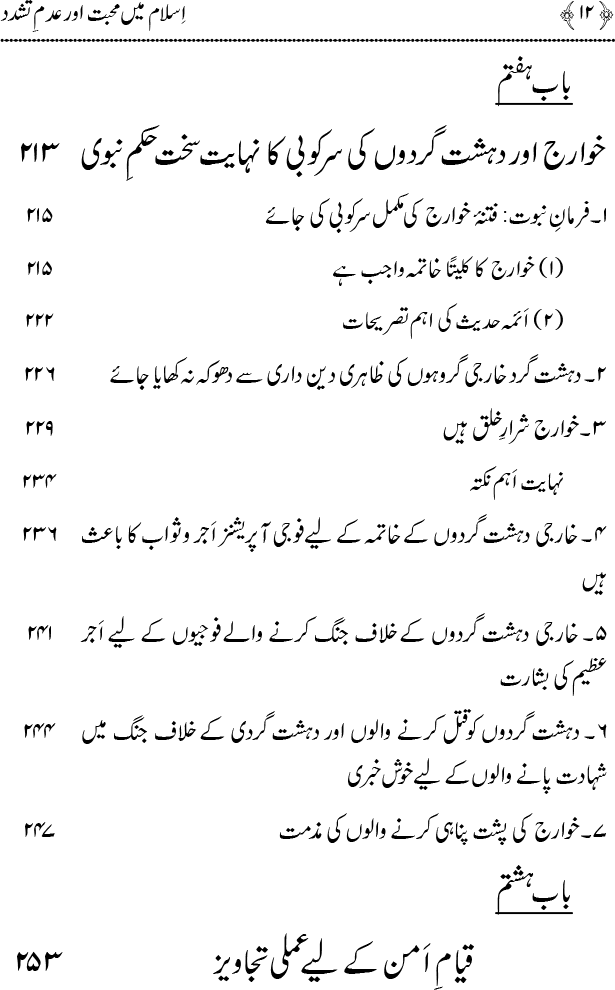 ﴿۱۲﴾ اِسلام میں محبت اور عدمِ تشدد
باب ہفتم
خوارج اور دہشت گردوں کی سرکوبی کا نہایت سخت حکمِ نبوی ۲۱۳
۱۔ فرمانِ نبوت: فتنۂ خوارج کی مکمل سرکوبی کی جائے ۲۱۵
(۱) خوارج کا کلیتًا خاتمہ واجب ہے ۲۱۵
(۲) اَئمہ حدیث کی اہم تصریحات ۲۲۲
۲۔ دہشت گرد خارجی گروہوں کی ظاہری دین داری سے دھوکہ نہ کھایا جائے ۲۲۶
۳۔ خوارج شرارِ خلق ہیں ۲۲۹
نہایت اَہم نکتہ ۲۳۴
۴۔ خارجی دہشت گردوں کے خاتمہ کے لیے فوجی آپریشنز اَجر و ثواب کا باعث ۲۳۶
ہیں
۵۔ خارجی دہشت گردوں کے خلاف جنگ کرنے والے فوجیوں کے لیے اَجر ۲۴۱
عظیم کی بشارت
۶۔ دہشت گردوں کو قتل کرنے والوں اور دہشت گردی کے خلاف جنگ میں ۲۴۴
شہادت پانے والوں کے لیے خوش خبری
۷۔ خوارج کی پشت پناہی کرنے والوں کی مذمت ۲۴۷
باب ہشتم
قیامِ اَمن کے لیے عملی تجاویز ۲۵۳